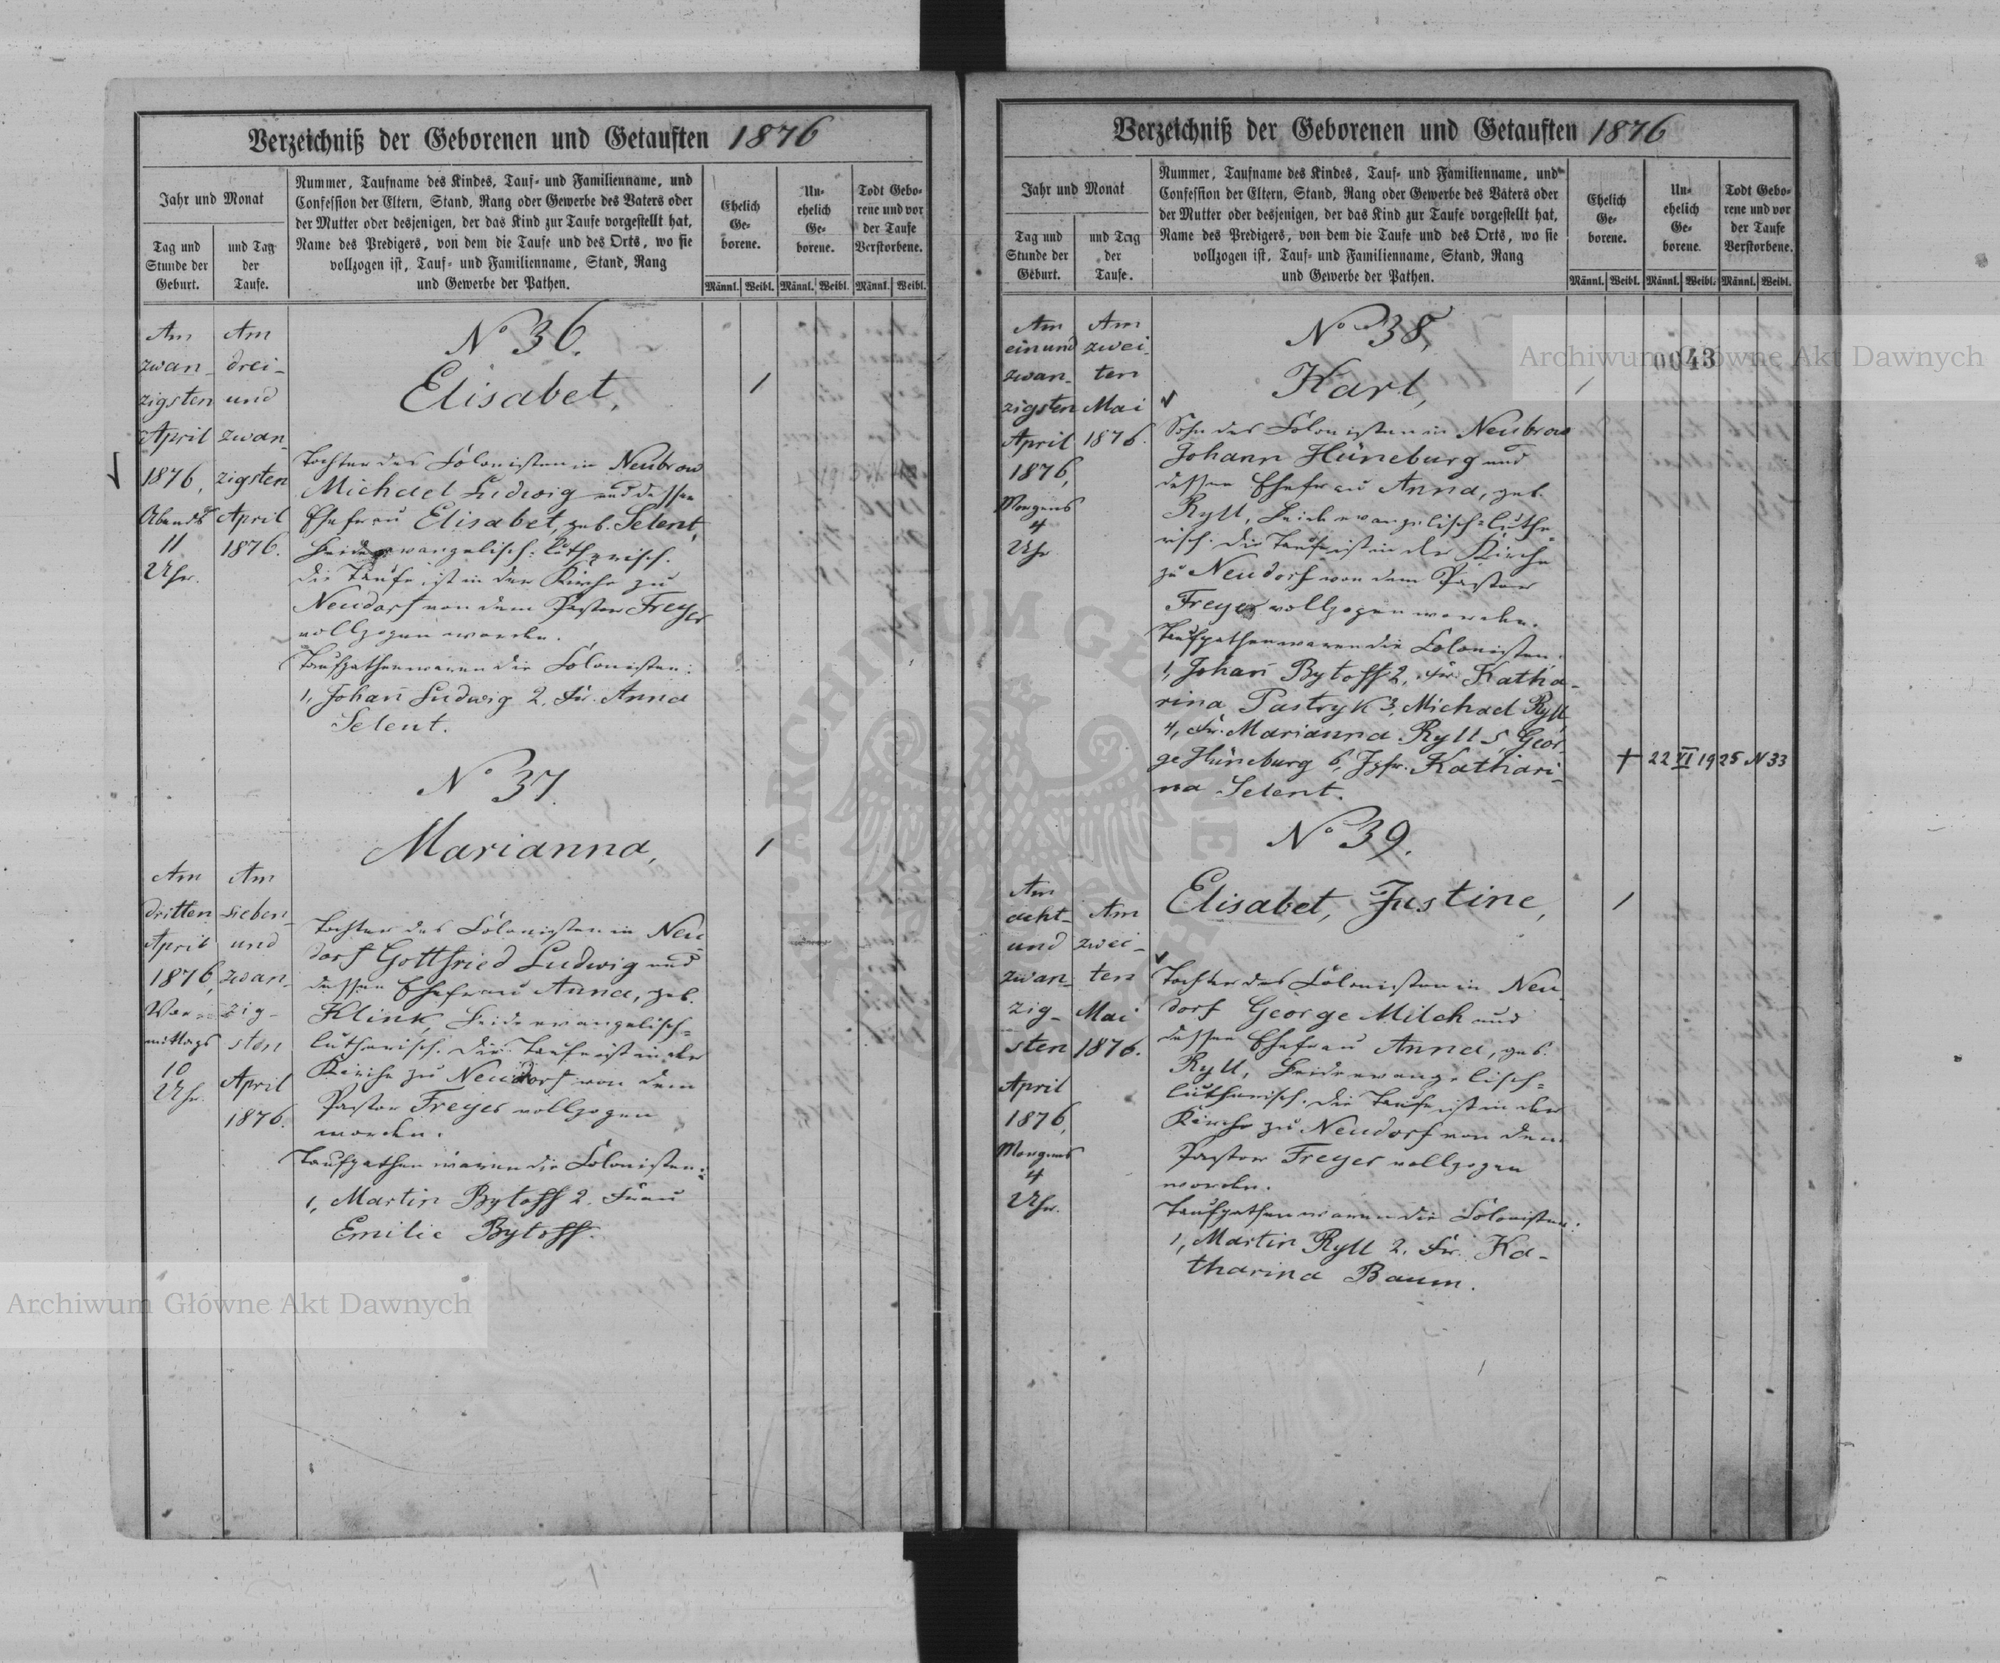 Verzeichniß der Geborenen und Getauften 1876
Jahr und Monat
Tag und
Stunde der
Geburt.
und Tag
der
Taufe.
Nummer, Taufname des Kindes, Tauf- und Familienname, und
Confession der Eltern, Stand, Rang oder Gewerbe des Vaters oder
der Mutter oder desjenigen, der das Kind zur Taufe vorgestellt hat,
Name des Predigers, von dem die Taufe und des Orts, wo sie
vollzogen ist, Tauf- und Familienname, Stand, Rang
und Gewerbe der Pathen.
Ehelich
Ge-
borene.
Un-
ehelich
Ge-
borene.
Todt Gebo-
rene und vor
der Taufe
Verstorbene.
Männl. Weibl. Männl. Weibl. Männl. Weibl.
Am
zwan-
zigsten
April
1876,
Abends
11
Uhr.
Am
drei-
und
zwan-
zigsten
April
1876.
No 36.
Elisabet,
1
Tochter des Colonisten in Neubrow
Michael Ludwig und dessen
Ehefrau Elisabet, geb. Selent,
beide evangelisch-lutherisch.
Die Taufe ist in der Kirche zu
Neudorf von dem Pastor Freyer
vollzogen worden.
Taufpathen waren die Colonisten:
1, Johañ Ludwig 2. Fr. Anna
Selent.
Am
dritten
April
1876,
Vor-
mittags
10
Uhr.
Am
sieben-
und
zwan-
zig-
sten
April
1876.
No 37.
Marianna,
1
Tochter des Colonisten in Neu-
dorf Gottfried Ludwig und
dessen Ehefrau Anna, geb.
Klink, beide evangelisch-
lutherisch. Die Taufe ist in der
Kirche zu Neudorf von dem
Pastor Freyer vollzogen
worden.
Taufpathen waren die Colonisten:
1, Martin Bytoff 2. Frau
Emilie Bytoff.
Verzeichniß der Geborenen und Getauften 1876
Jahr und Monat
Tag und
Stunde der
Geburt.
und Tag
der
Taufe.
Nummer, Taufname des Kindes, Tauf- und Familienname, und
Confession der Eltern, Stand, Rang oder Gewerbe des Vaters oder
der Mutter oder desjenigen, der das Kind zur Taufe vorgestellt hat,
Name des Predigers, von dem die Taufe und des Orts, wo sie
vollzogen ist, Tauf- und Familienname, Stand, Rang
und Gewerbe der Pathen.
Ehelich
Ge-
borene.
Un-
ehelich
Ge-
borene.
Todt Gebo-
rene und vor
der Taufe
Verstorbene.
Männl. Weibl. Männl. Weibl. Männl. Weibl.
0043
Am
einund
zwan-
zigsten
April
1876,
Morgens
4
Uhr
Am
zwei-
ten
Mai
1876.
No 38,
Karl,
1
Sohn des Colonisten in Neubrow
Johann Hüneburg und
dessen Ehefrau Anna, geb.
Ryll, beide evangelisch-luthe-
risch. Die Taufe ist in der Kirche
zu Neudorf von dem Pastor
Freyer vollzogen worden.
Taufpathen waren die Colonisten:
1, Johañ Bytoff 2, Fr. Katha-
rina Pastryk 3, Michael Ryll
4, Fr. Marianna Ryll 5, Geor-
ge Hüneburg 6, Jgfr. Kathari-
na Selent.
† 22 VI 1925 N 33
Am
acht-
und
zwan-
zig-
sten
April
1876,
Morgens
4
Uhr.
Am
zwei-
ten
Mai
1876.
No 39.
Elisabet, Justine,
1
Tochter des Colonisten in Neu-
dorf George Milch und
dessen Ehefrau Anna, geb.
Ryll, beide evangelisch-
lutherisch. Die Taufe ist in der
Kirche zu Neudorf von dem
Pastor Freyer vollzogen
worden.
Taufpathen waren die Colonisten:
1, Martin Ryll 2. Fr. Ka-
tharina Baum.
Archiwum Główne Akt Dawnych
Archiwum Główne Akt Dawnych
ARCHIWUM GŁÓWNE AKT DAWNYCH